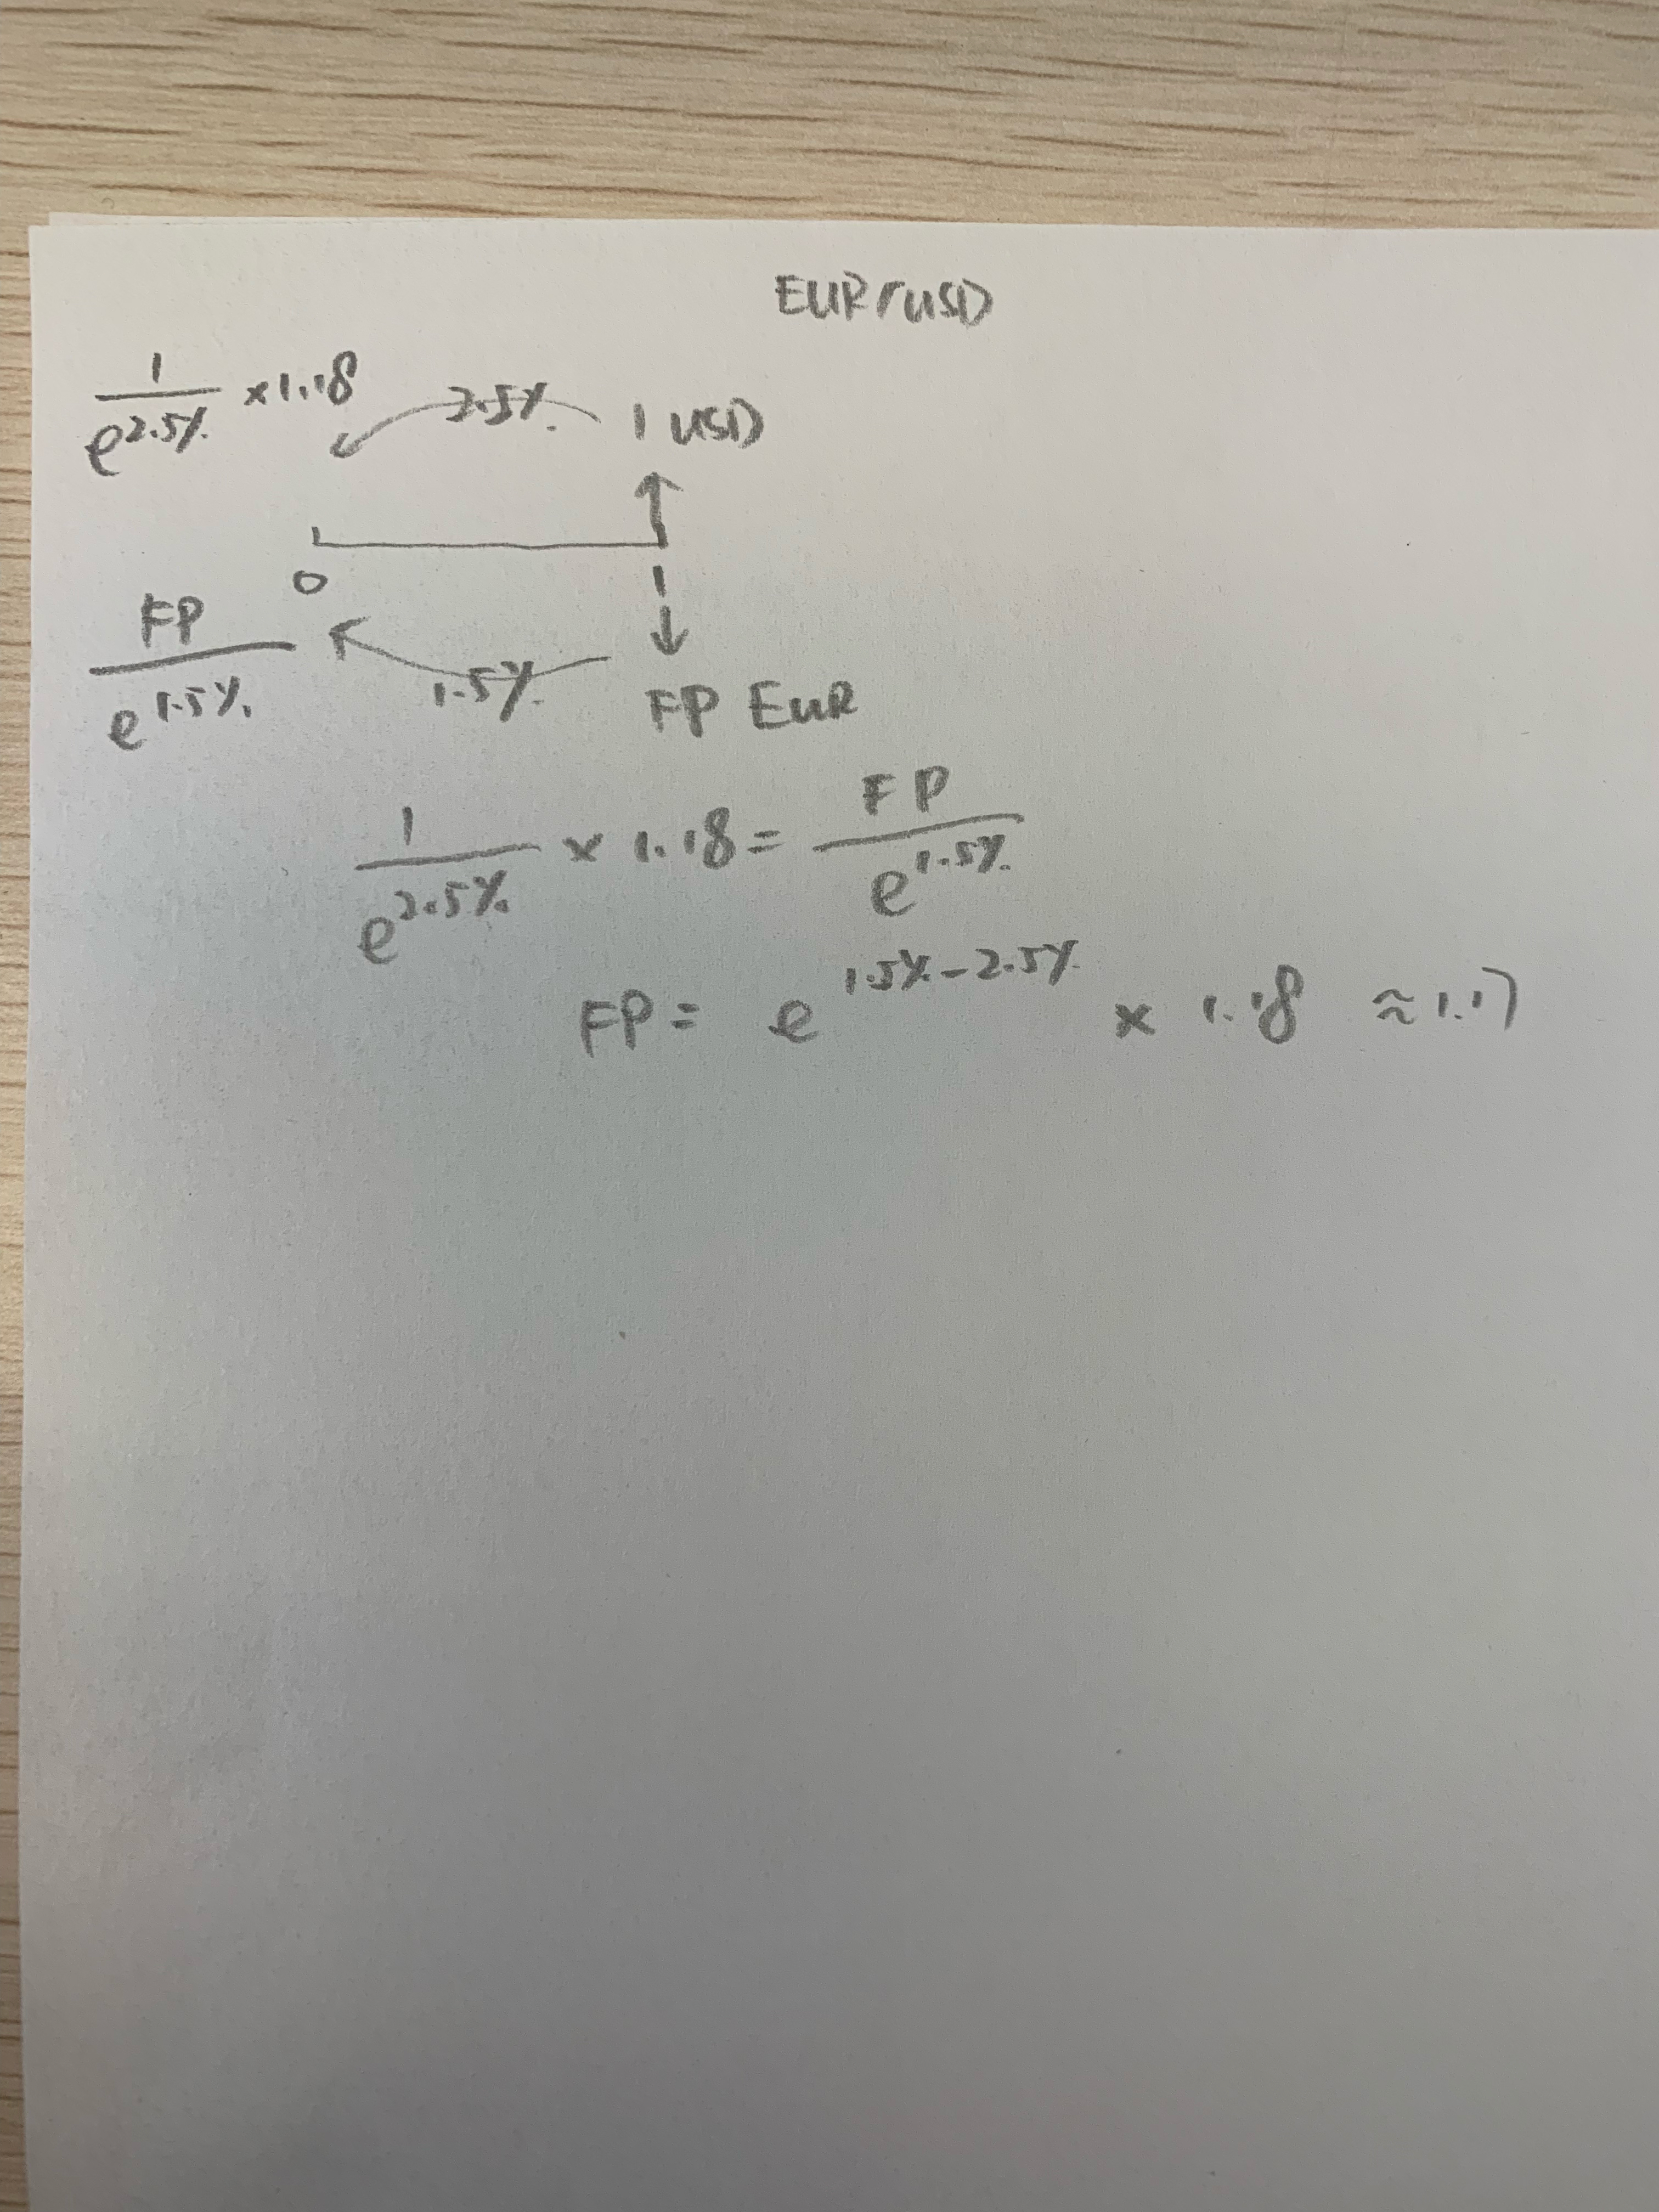 EUR/USD
1/e^2.5% ×1.18
2.5%
1 USD
0
1
FP/e^1.5%
1.5%
FP EUR
1/e^2.5% × 1.18 = FP/e^1.5%
FP = e^1.5%-2.5% × 1.18 ≈1.17